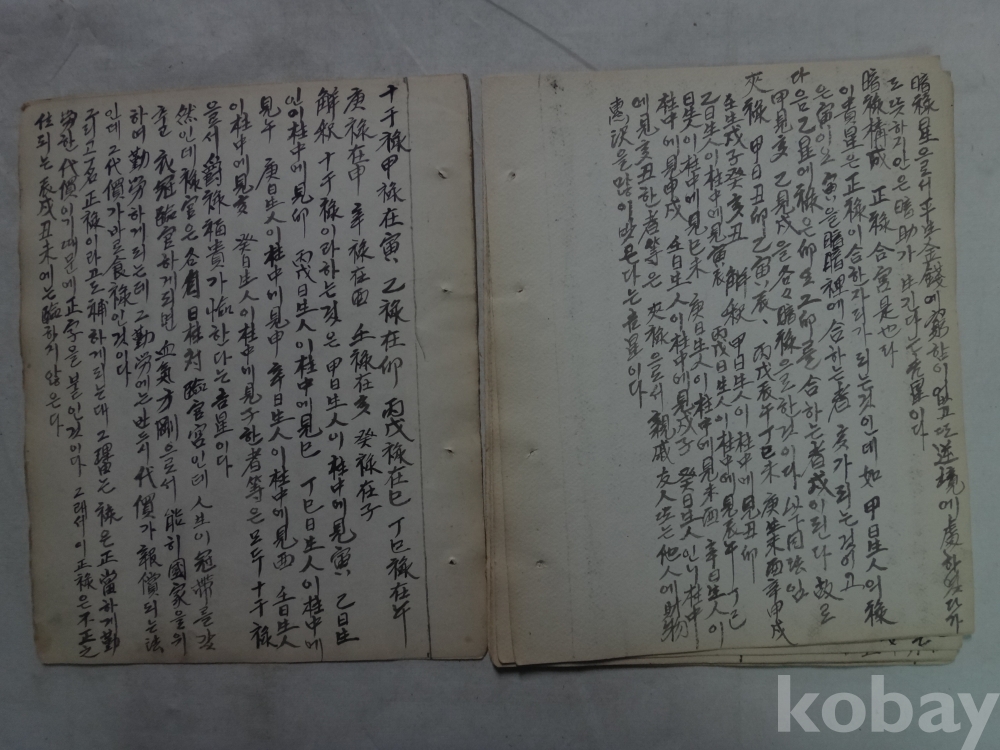 暗祿星으로서 平生金錢에 窮함이 없고 또 逆境에 處하였다가
도 뜻하지 안은 暗助가 생긴다는 吉星이다
暗祿構成 正祿合宮是也라
이 貴星은 正祿이 合한 자리가 되는것인데 如 甲日生人의 祿
은 寅이오 寅을 暗暗裡에 合하는 者 亥가 되는 것이고
다음 乙星에 祿은 卯요 그 卯를 合하는 者 戌이 된다 故로
甲見亥 乙見戌을 各々 暗祿으로 한것이다 以下同法임
夾祿 甲日丑卯 乙寅辰、丙戊辰午 丁巳未 庚 未酉 辛申戌
壬生戌子 癸亥丑 解釈 甲日生人이 柱中에 見丑卯
乙日生人이 柱中에 見寅辰 丙戊日生人이 柱中에 見辰午 丁己
日生人이 柱中에 見巳未 庚日生人이 柱中에 見未酉 辛日生人이
柱中에 見申戌 壬日生人이 柱中에 見戌子 癸日生人 柱中
에 見亥丑한 者等은 夾祿으로서 親戚友人 또는 他人에 財物
惠沢을 많이 받은다는 吉星이다
十干祿 甲祿在寅、乙祿在卯 丙戊祿在巳 丁己祿在午
庚祿在申 辛祿在酉 壬祿在亥 癸祿在子
解釈 十干祿이라하는 것은 甲日生人이 柱中에 見寅、乙日生
人이 柱中에 見卯 丙戊日生人이 柱中에 見巳 丁己日生人이 柱中에
見午 庚日生人이 柱中에 見申 辛日生人이 柱中에 見酉 壬日生人
이 柱中에 見亥 癸日生人이 柱中에 見子한 者等은 모두 十干祿
을 르서 爵祿福貴가 臨한다는 吉星이다
然인데 祿宮은 各自 日柱対 臨官宮인데 人生이 冠帶를 갖
추고 衣冠臨官하게되면 血氣方剛으로서 能히 國家을 위
하여 勤勞하게 되는데 그 勤勞에는 반드시 代價가 報償되는 法
인데 그 代價가 바로 食祿인것이다
그리고 一名 正祿이라고도 稱하게 되는대 그 理由는 祿은 正當하게 勤
労한 代價이기 때문에 正字을 붙인것이다 그래서 이 正祿은 不正之
位되는 辰戌丑未에는 臨하지 않은다
kobay